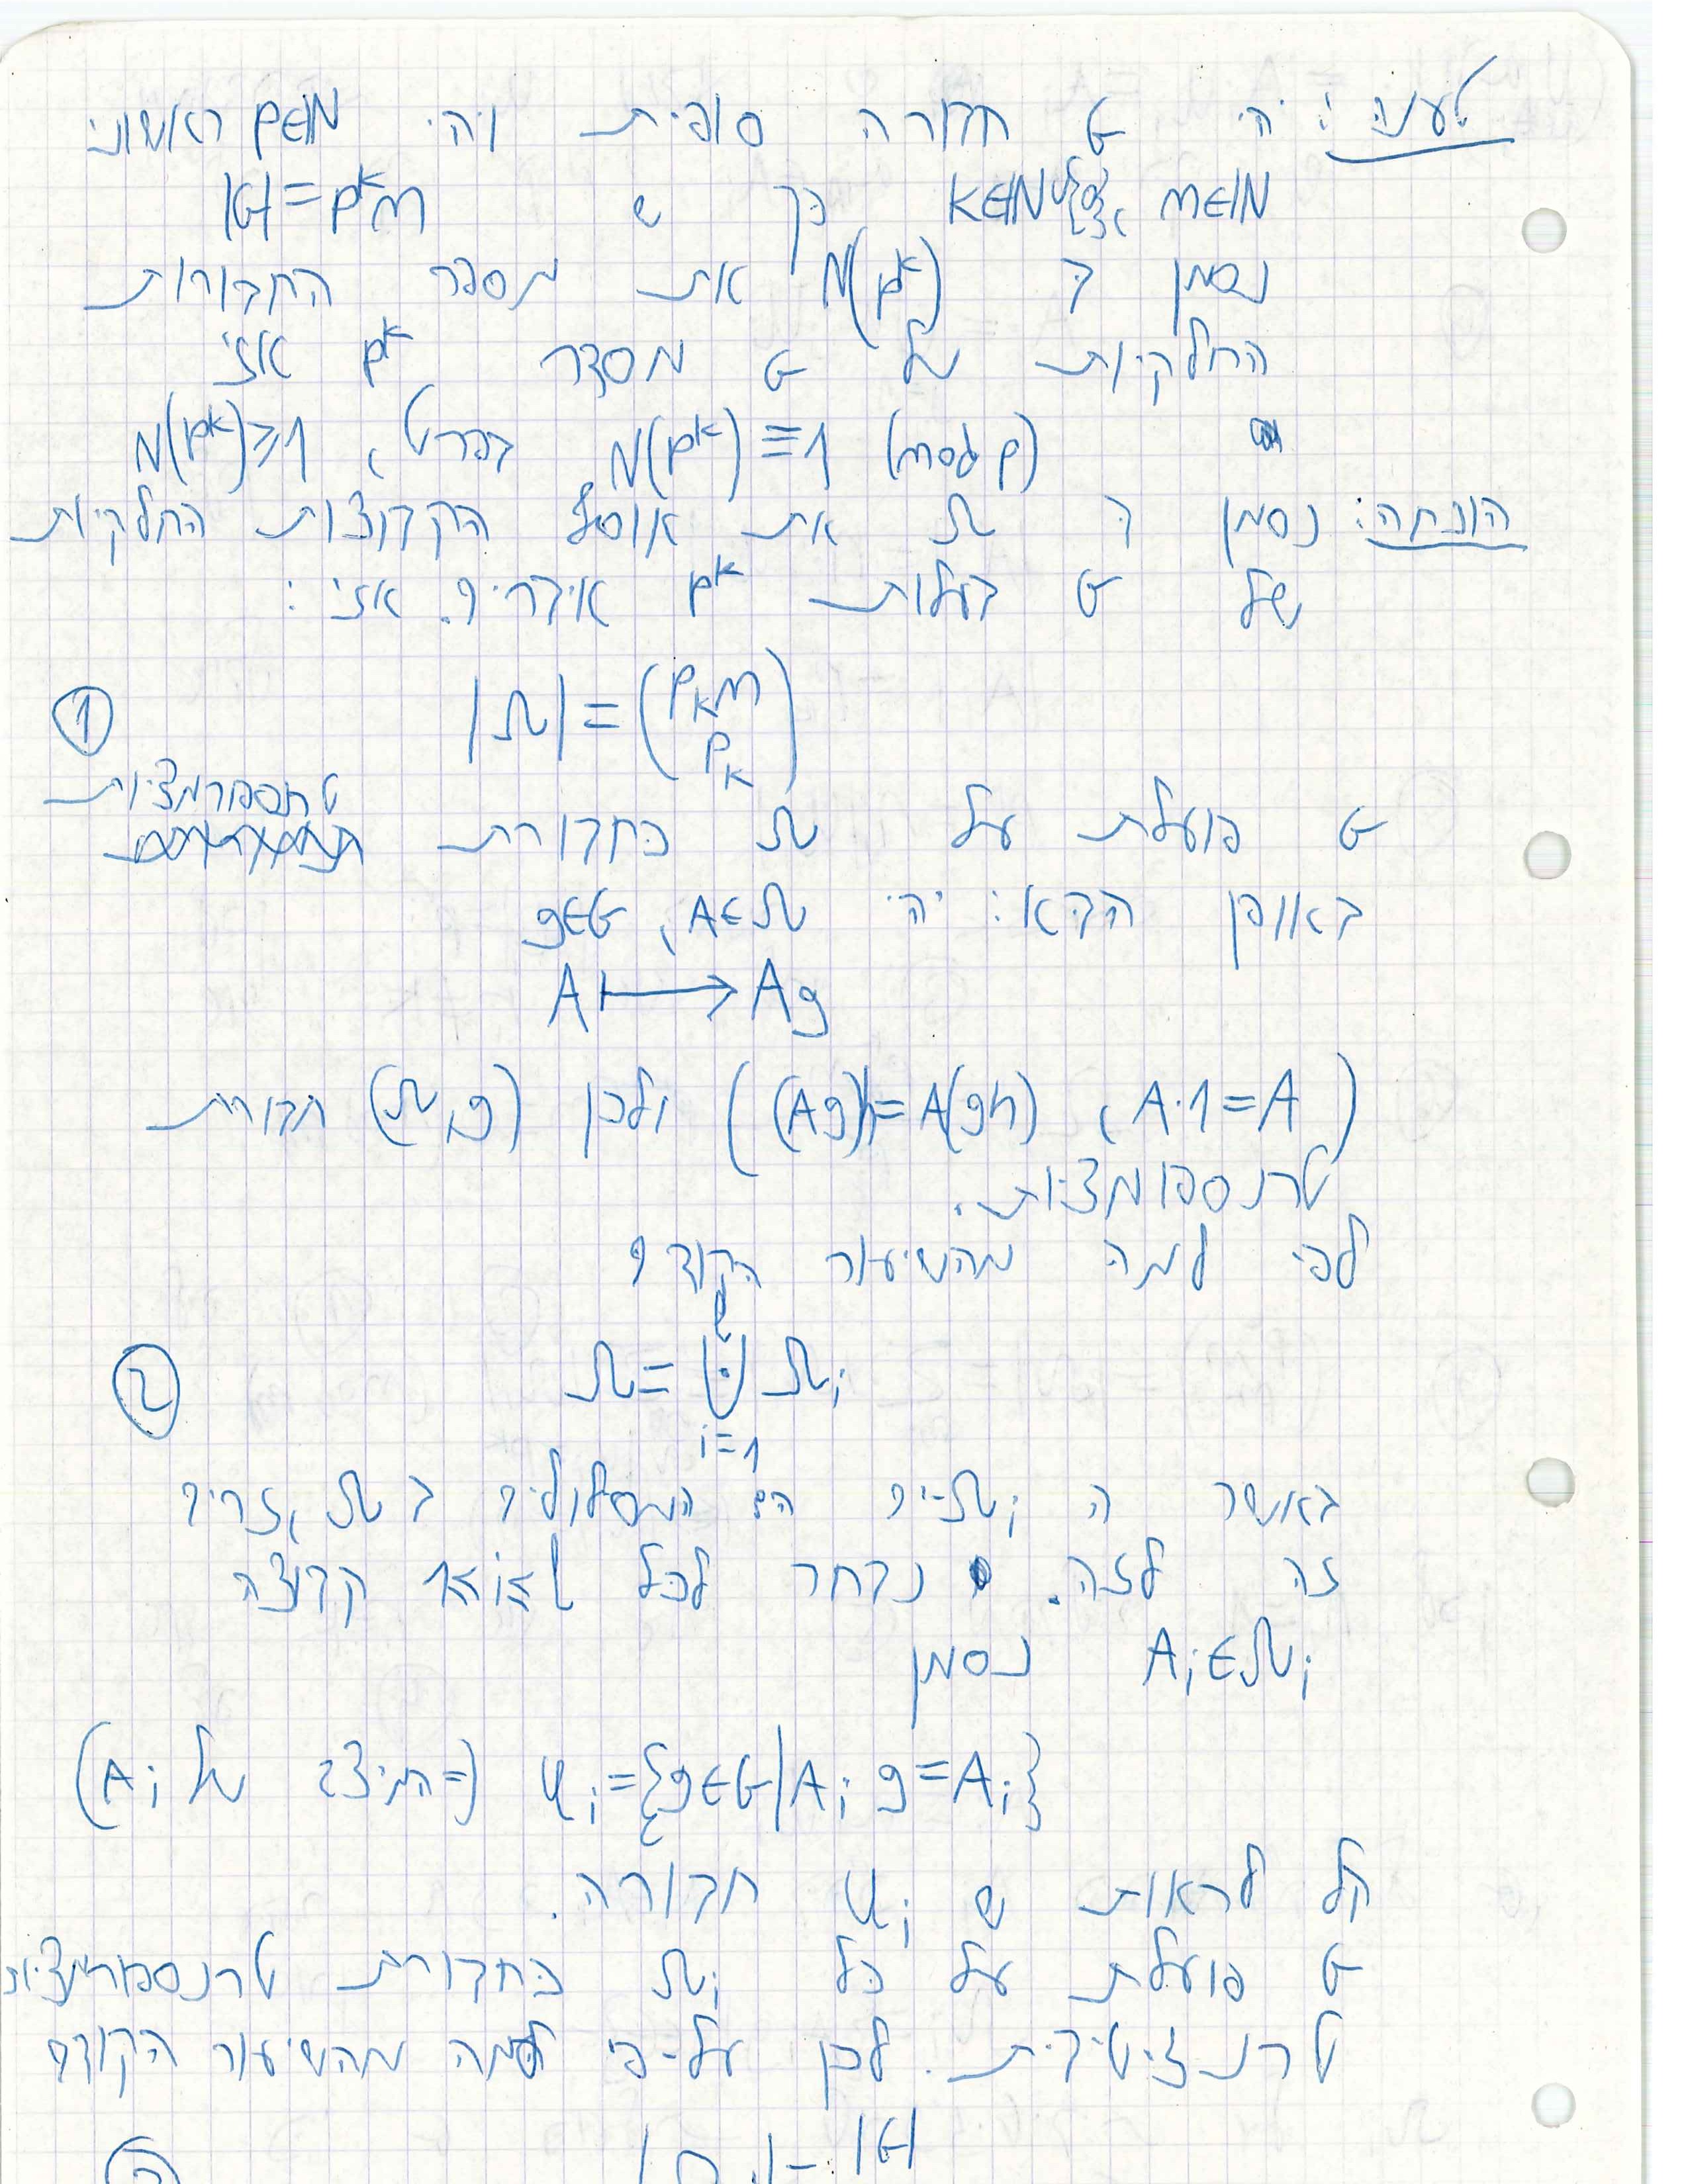 טענה: יהי G חבורה סופית ויהי p∈ℕ ראשוני
m∈ℕ k∈ℕ כך ש |G|=p^k m
נסמן ב N(p^k) את מספר החבורות
החלקיות של G מסדר p^k אזי
N(p^k)≡1 (mod p) בפרט, N(p^k)≥1
הוכחה: נסמן ב Ω את אוסף הקבוצות החלקיות
של G בעלות p^k איברים. אזי:
① |Ω|=(p^k m / p^k)
G פועלת על Ω כחבורת טרנספורמציות
באופן הבא: יהי A∈Ω, g∈G
A⟼Ag
(A·1=A, (Ag)h=A(gh)) ולכן (Ω,g) חבורת
טרנספומציות.
לפי למה מהשיעור הקודם
② Ω=⨃_{i=1}^{l} Ω_i
כאשר ה Ω_i-ים הם המסלולים ב Ω, זרים
זה לזה. נבחר לכל 1≤i≤l קבוצה
A_i∈Ω_i נסמן
U_i={g∈G|A_i g=A_i} (=המיצב של A_i)
קל לראות ש U_i חבורה.
G פועלת על כל Ω_i כחבורת טרנספורמציות
טרנזיטיבית. לכן על-פי למה מהשיעור הקודם
|G|